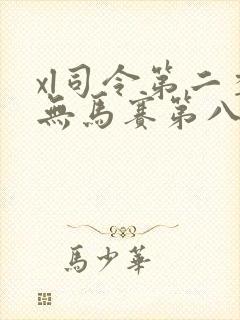 xl司令第二
無馬賽第八
馬少華